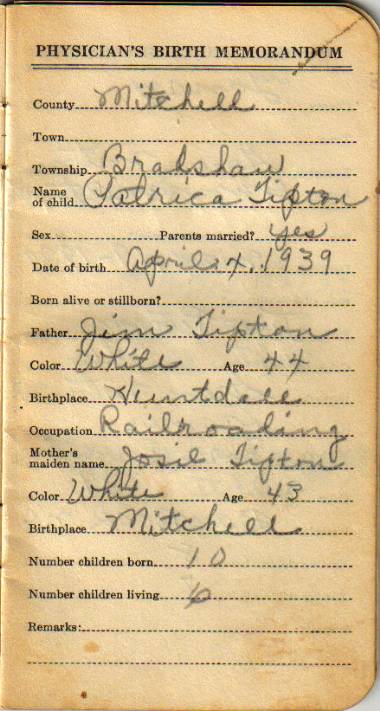 PHYSICIAN'S BIRTH MEMORANDUM
County Mitchell
Town
Township Bradshaw
Name of child Patrica Tipton
Sex Parents married? yes
Date of birth April 4, 1939
Born alive or stillborn?
Father Jim Tipton
Color White Age 44
Birthplace Huntdale
Occupation Railroading
Mother's maiden name Josie Tipton
Color White Age 43
Birthplace Mitchell
Number children born 10
Number children living 6
Remarks: